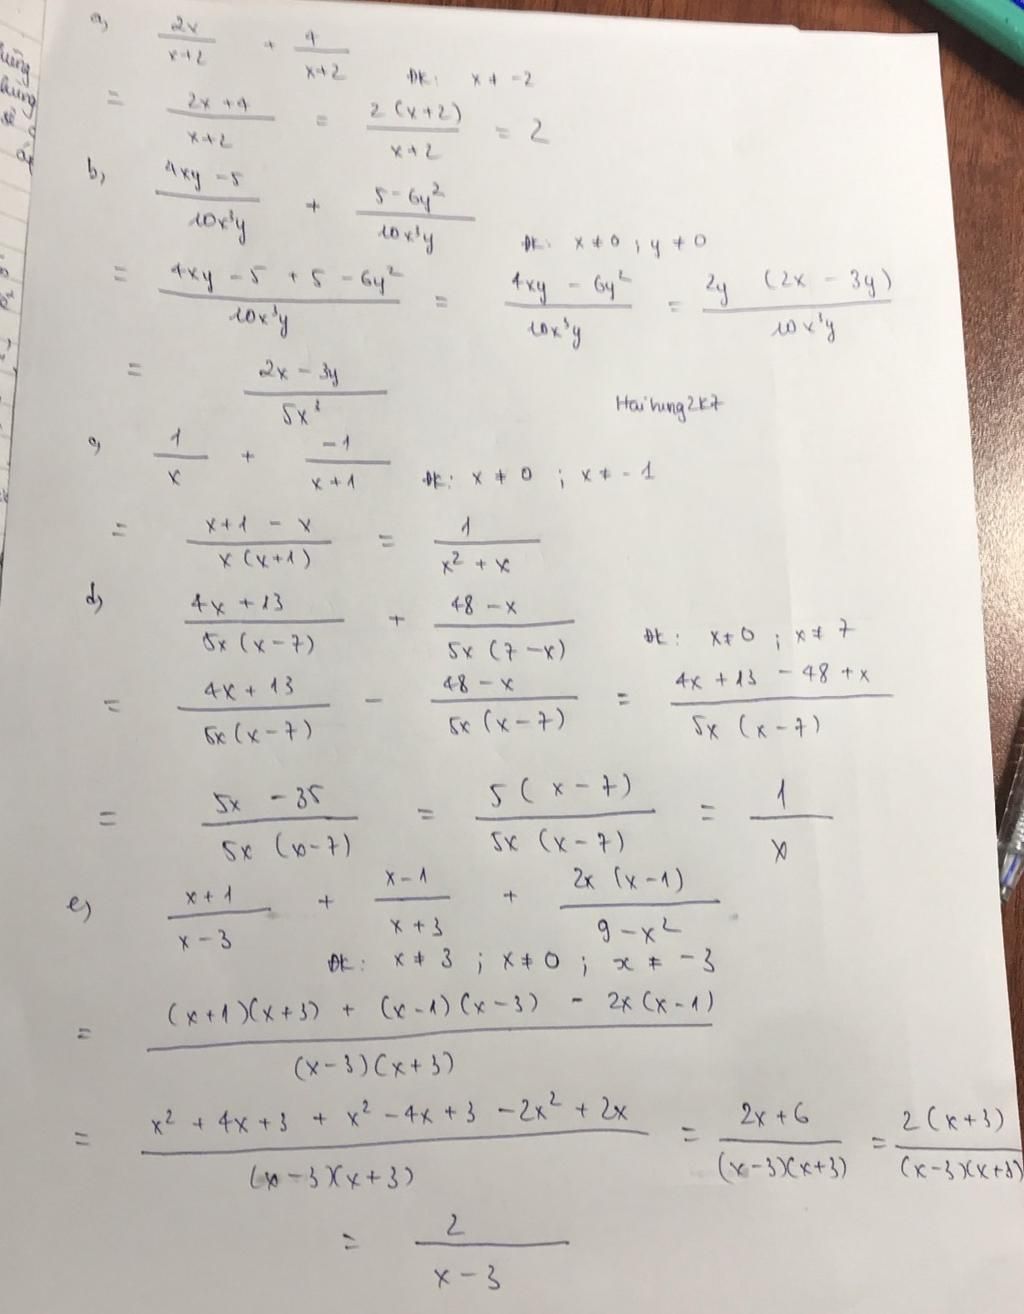 a, 2x/(x+2) + 4/(x+2) ĐK: x ≠ -2
= (2x+4)/(x+2) = 2(x+2)/(x+2) = 2
b, (4xy-5)/(10x³y) + (5-6y²)/(10x³y) ĐK: x ≠ 0 ; y ≠ 0
= (4xy-5+5-6y²)/(10x³y) = (4xy-6y²)/(10x³y) = 2y(2x-3y)/(10x³y)
= (2x-3y)/(5x³)
Haihung2k7
c, 1/x + (-1)/(x+1) ĐK: x ≠ 0 ; x ≠ -1
= (x+1-x)/(x(x+1)) = 1/(x²+x)
d, (4x+13)/(5x(x-7)) + (48-x)/(5x(7-x)) ĐK: x ≠ 0 ; x ≠ 7
= (4x+13)/(5x(x-7)) - (48-x)/(5x(x-7)) = (4x+13-48+x)/(5x(x-7))
= (5x-35)/(5x(x-7)) = 5(x-7)/(5x(x-7)) = 1/x
e, (x+1)/(x-3) + (x-1)/(x+3) + 2x(x-1)/(9-x²)
ĐK: x ≠ 3 ; x ≠ 0 ; x ≠ -3
= ((x+1)(x+3) + (x-1)(x-3) - 2x(x-1))/((x-3)(x+3))
= (x²+4x+3+x²-4x+3-2x²+2x)/((x-3)(x+3)) = (2x+6)/((x-3)(x+3)) = 2(x+3)/((x-3)(x+3))
= 2/(x-3)